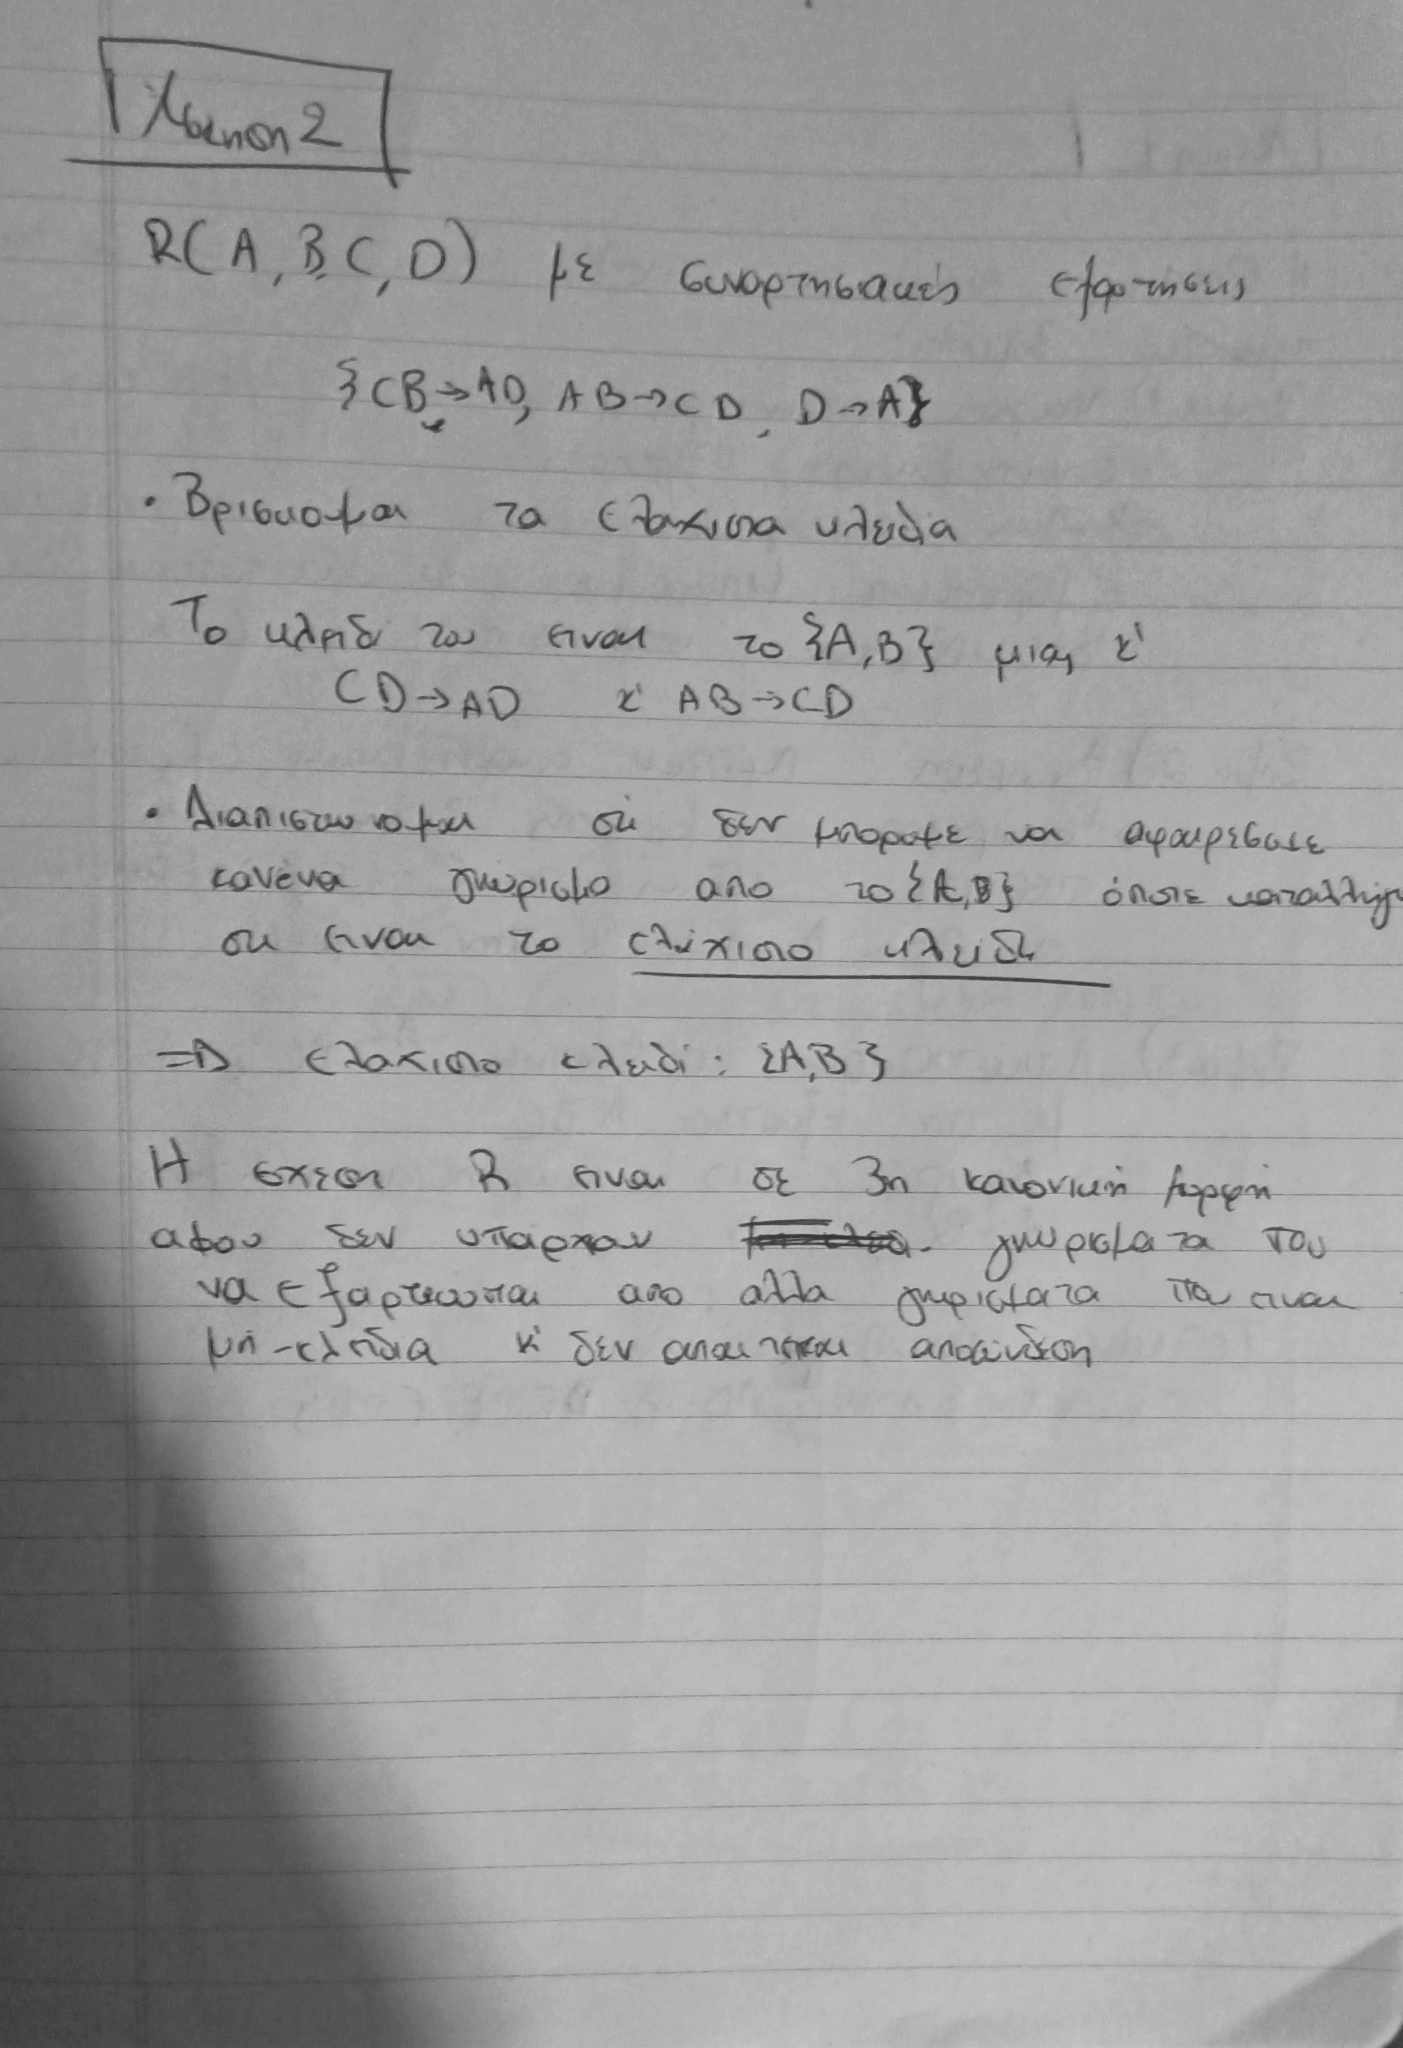 Άσκηση 2
R(A, B, C, D) με συναρτησιακές εξαρτησεις
{CB→AD, AB→CD, D→A}
• Βρισκουμαι τα ελαχιστα κλειδια
Το κλειδι του ειναι το {A,B} μιας κ'
CD→AD κ' AB→CD
• Διαπιστωνουμαι οτι δεν μπορουμε να αφαιρεσουμε
κανένα γνωρισμα απο το {A,B} όποτε
οτι ειναι το ελάχιστο κλειδι
⇒ ελαχιστο κλειδί : {A,B}
Η σχεση R ειναι σε 3η κανονική μορφή
αφου δεν υπαρχουν γνωρισματα που
να εξαρτωνται απο αλλα γνωρισματα που ειναι
μη-κλειδια κ' δεν απαιτειται αποσύνδεση